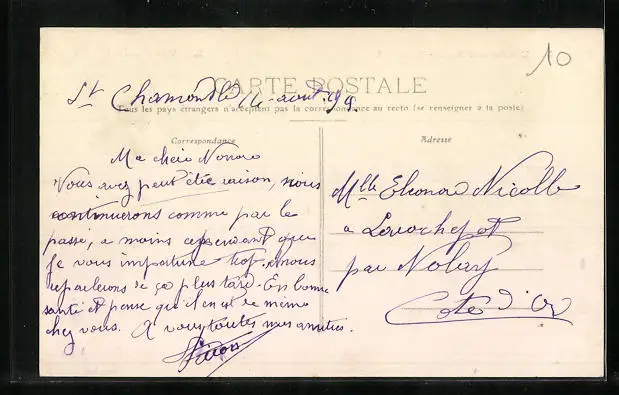 10
CARTE POSTALE
St Chamond le 14 aout
Tous les pays étrangers n'acceptent pas la correspondance au recto (se renseigner à la poste)
Correspondance
Ma chere
Vous avez peut être raison, nous
continuerons comme par le
passé, a moins cependant que
je vous importune trop. nous
reparlerons de ça plus tard. En bonne
santé et pense qu'il en est de même
chez vous. A vous toutes mes amities.
Adresse
Mlle Eleonore Nicolle
a Larochepot
par Nolay
Cote d'Or